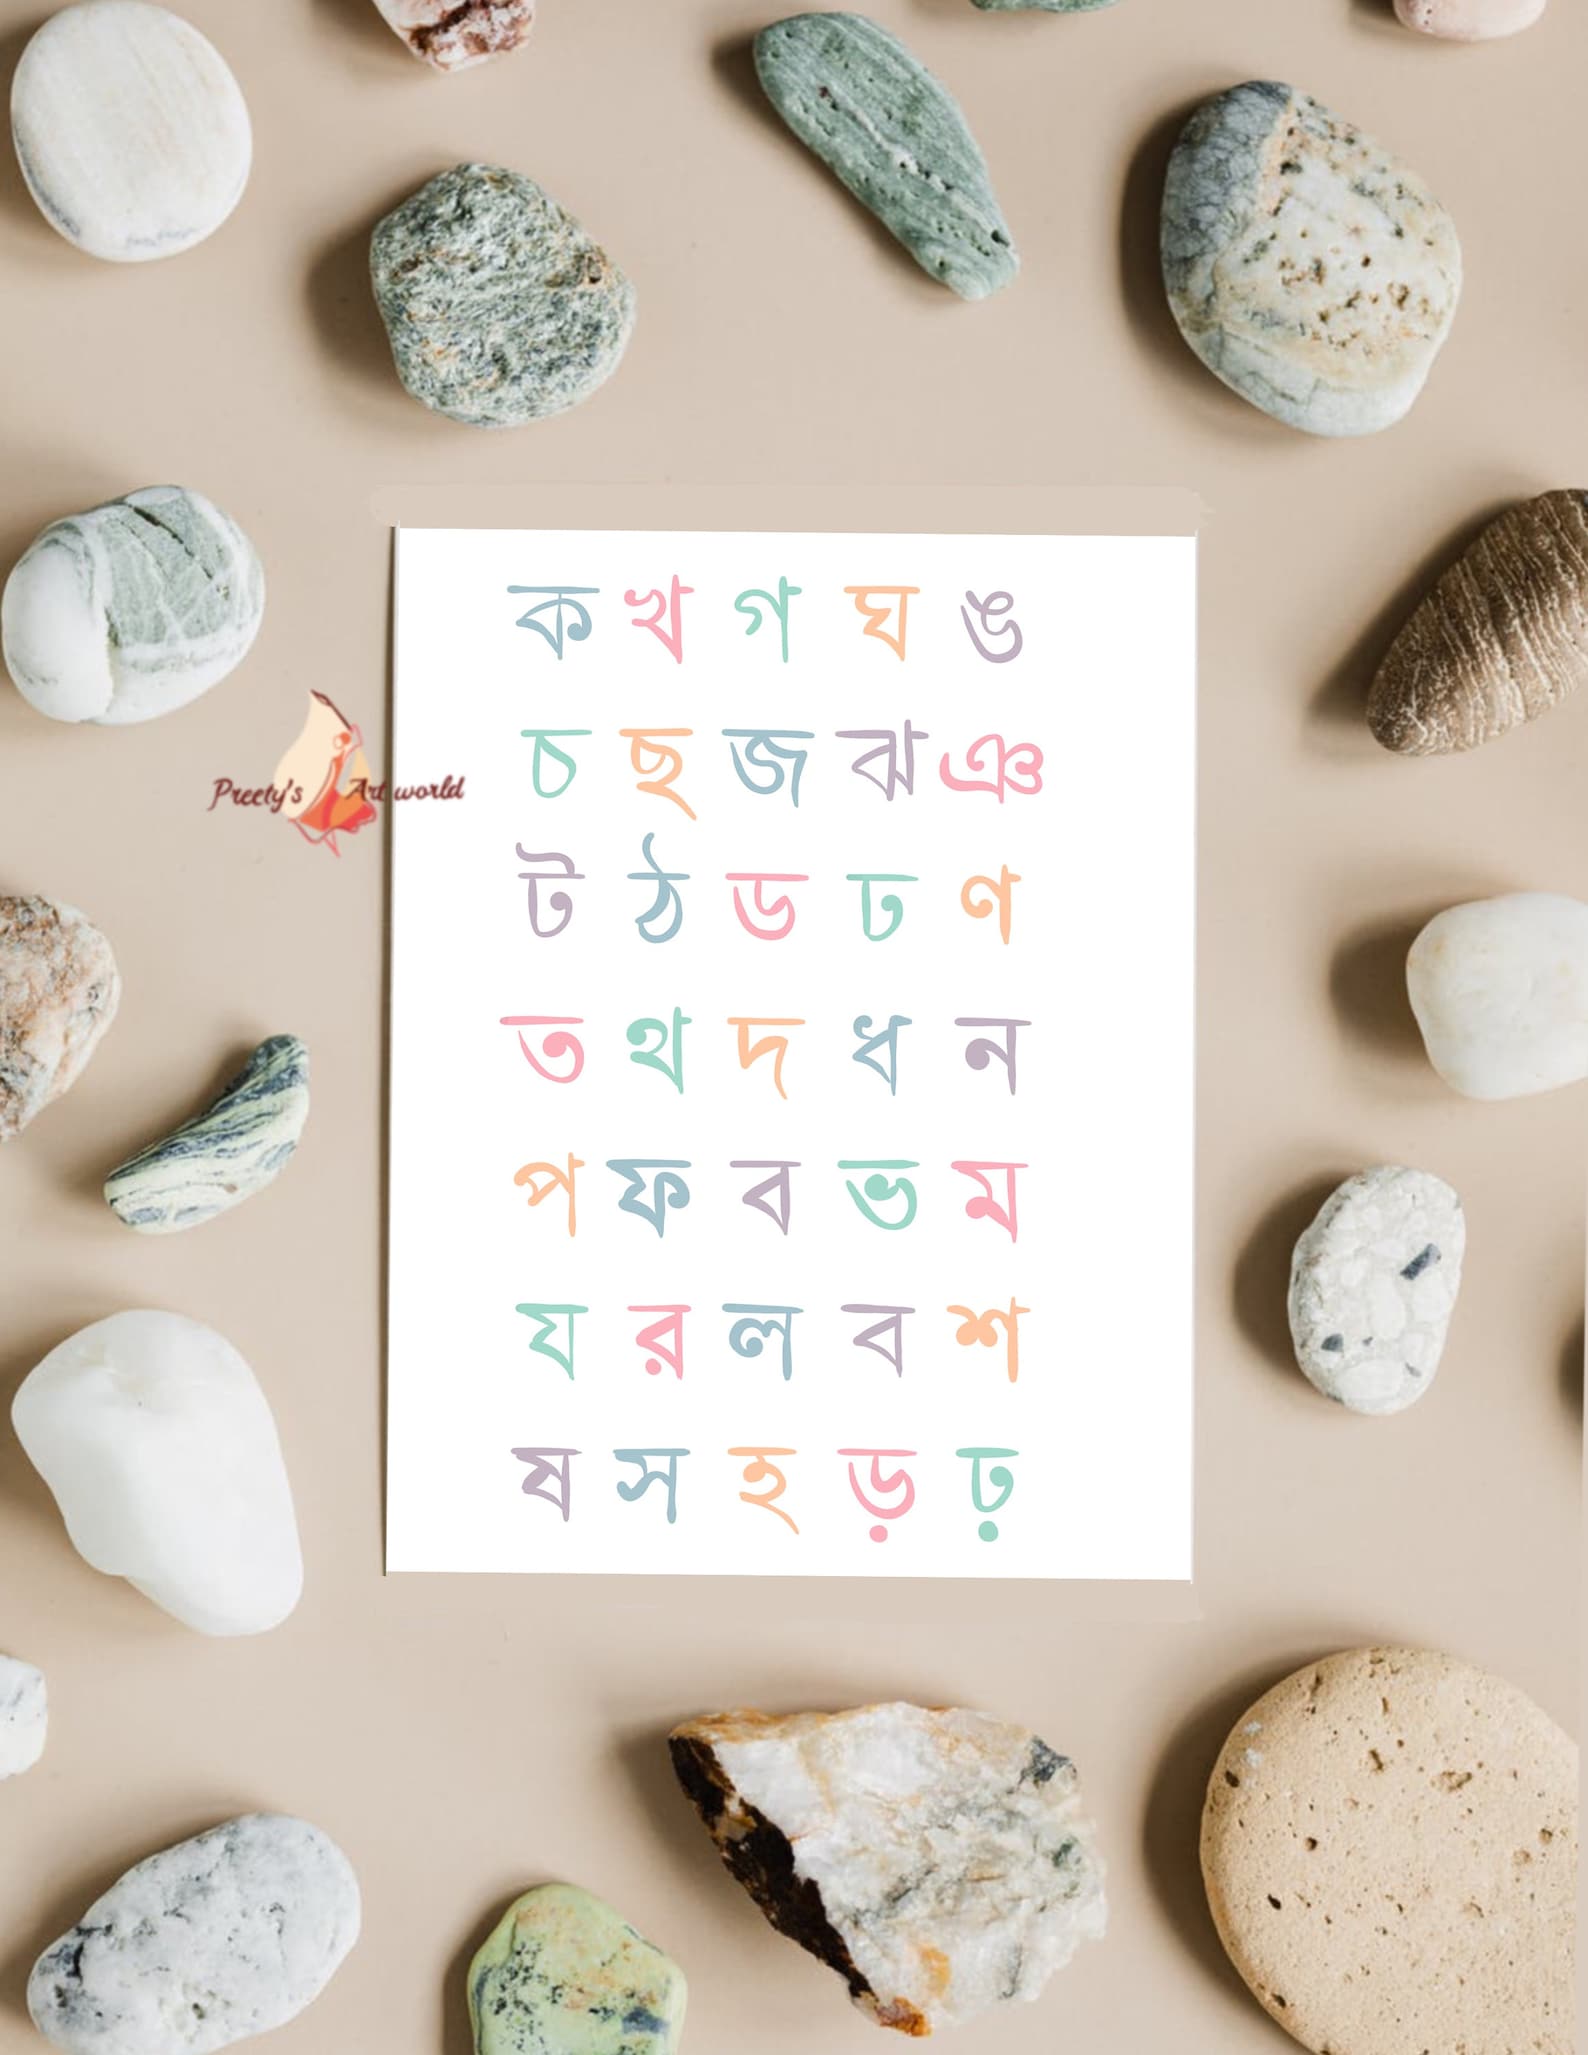 ক খ গ ঘ ঙ
চ ছ জ ঝ ঞ
Preety's Art world
ট ঠ ড ঢ ণ
ত থ দ ধ ন
প ফ ব ভ ম
য র ল ব শ
ষ স হ ড় ঢ়